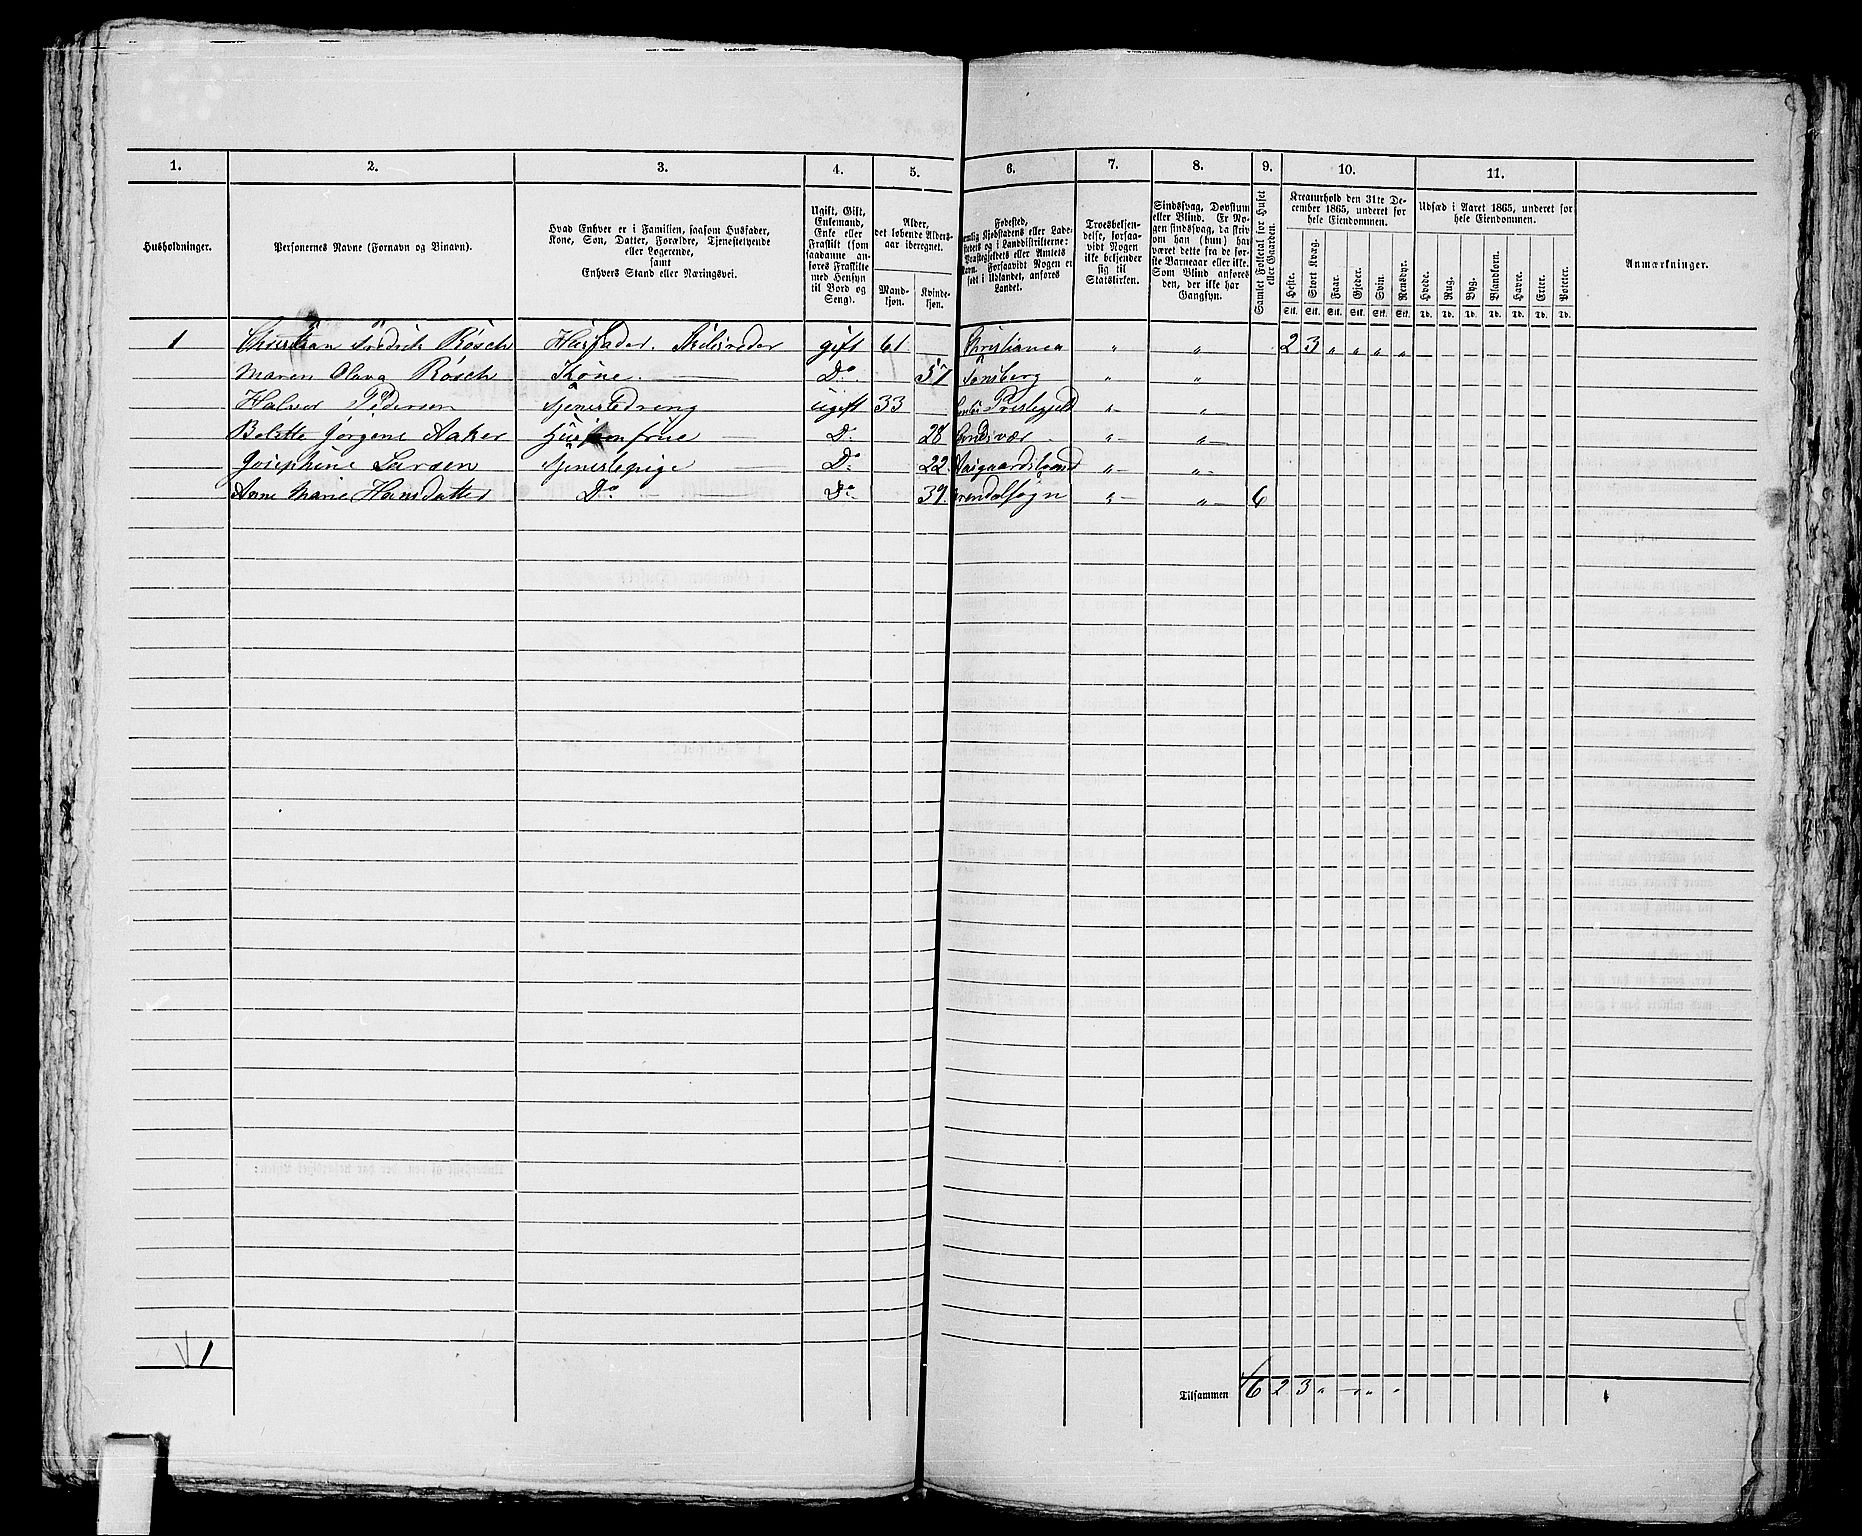 1. 2. 3. 4. 5. 6. 7. 8. 9. 10. 11.
Husholdninger.
Personernes Navne (Fornavn og Binavn).
Hvad Enhver er i Familien, saasom Husfader,
Kone, Søn, Datter, Forældre, Tjenestetyende
eller Logerende,
samt
Enhvers Stand eller Næringsvei.
Ugift, Gift,
Enkemand,
Enke eller
Fraskilt (som
saadanne an-
føres Fraskilte
med Hensyn
til Bord og
Seng).
Alder,
det løbende Alders-
aar iberegnet.
Mand-
kjøn.
Kvinde-
kjøn.
Fødested,
Kjøbstadens eller Lade-
stedets og i Landdistrikterne:
Præstegjeldets eller Amtets
Navn. Forsaavidt Nogen er
født i Udlandet, anføres
Landet.
Troesbekjen-
delse, forsaa-
vidt Nogen
ikke bekjender
sig til
Statskirken.
Sindssvag, Døvstum
eller Blind. Er No-
gen sindssvag, da skriv
om han (hun) har
været dette fra de før-
ste Barneaar eller ikke.
Som Blind anføres
den, der ikke har
Gangsyn.
Samlet Folketal for Huset
eller Gaarden.
Kreaturhold den 31te De-
cember 1865, underet for
hele Eiendommen.
Heste. Stort Kvæg. Faar. Gjeder. Svin. Rensdyr.
Stk. Stk. Stk. Stk. Stk. Stk.
Udsæd i Aaret 1865, underet for
hele Eiendommen.
Hvede. Rug. Byg. Blandkorn. Havre. Erter. Poteter.
Td. Td. Td. Td. Td. Td. Td.
Anmærkninger.
1 Christian Fredrik Rösch Husfader. Skibsreder gift 61 Christiania " " 2 3 " " " "
Maren Olava Rösch Kone. Do. 57 Tønsberg " "
Halvor Pedersen Tjenestedreng ugift 33 Præstegjeld " "
Bolette Jørgine Aaker Huusjomfrue Do. 28 " "
Josephine Larsen Tjenestepige Do. 22 Aasgaardstrand " "
Anne Marie Hansdatter Do. Do. 39. " " 6
1
Tilsammen 6 2 3 " " " "